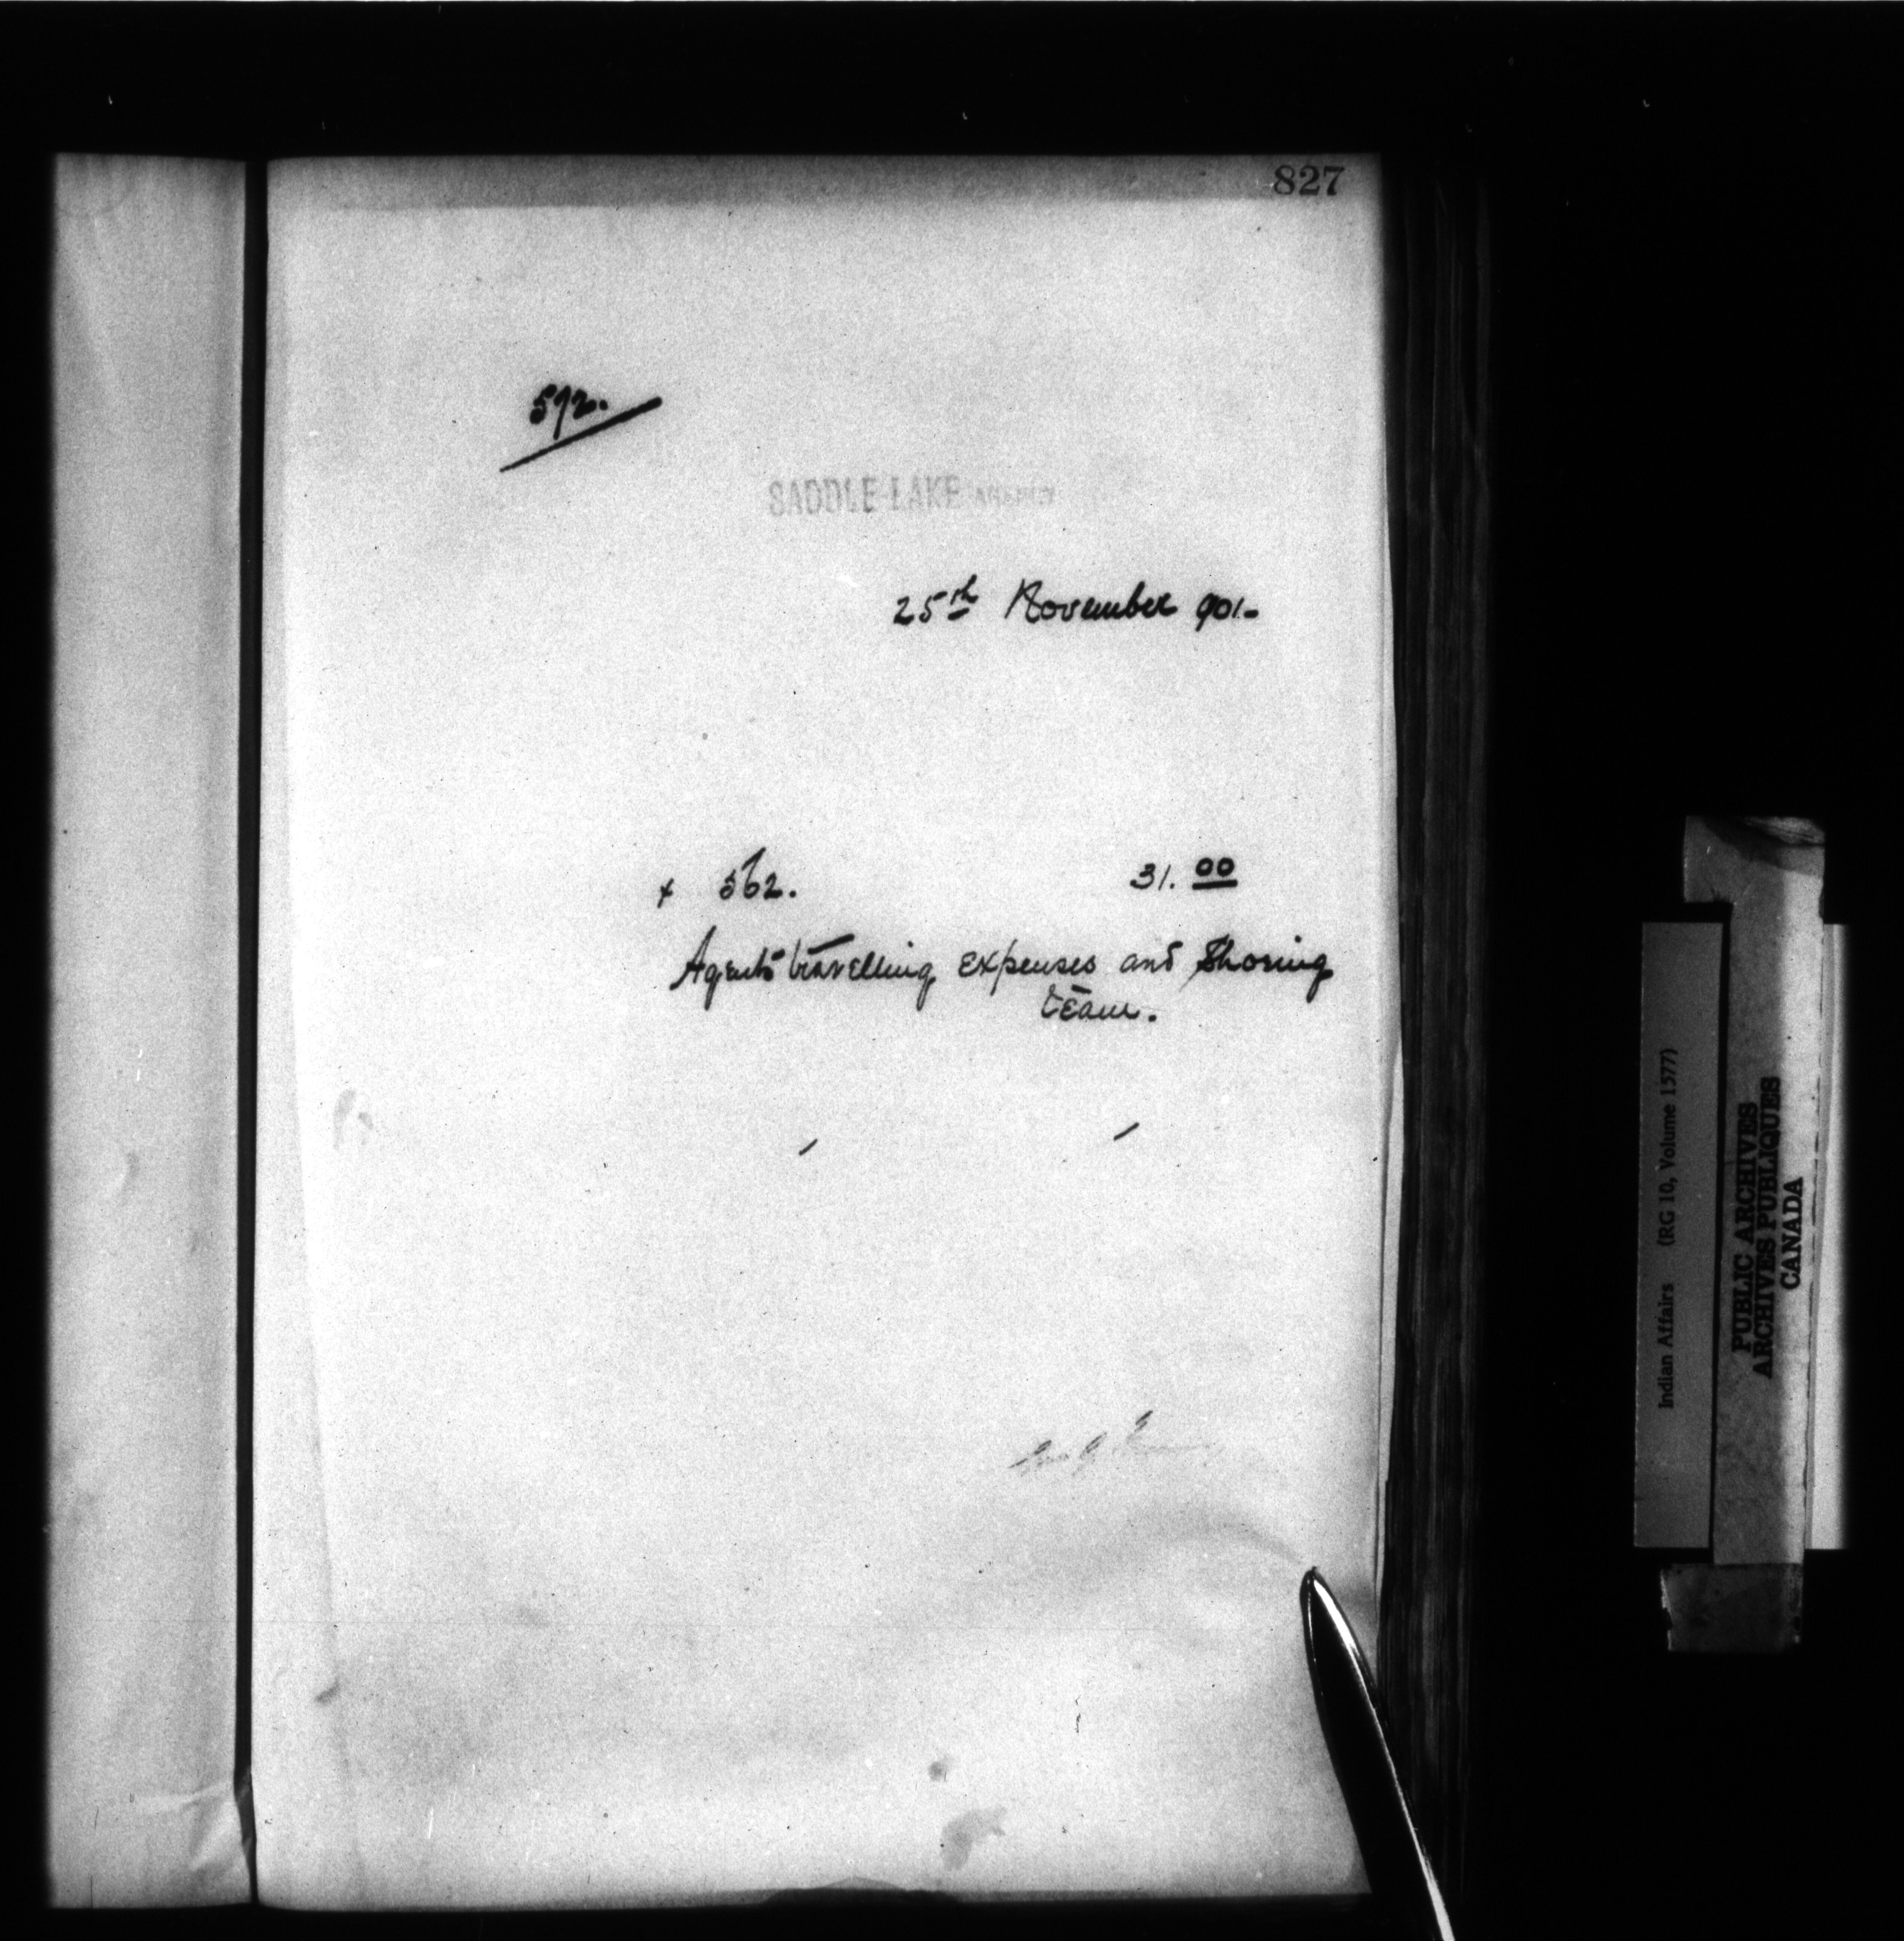 827
572.
SADDLE LAKE AGENCY
25th November 901-
x 562. 31.00
Agents travelling expenses and Shoeing
team.
Indian Affairs (RG 10, Volume 1577)
PUBLIC ARCHIVES
ARCHIVES PUBLIQUES
CANADA